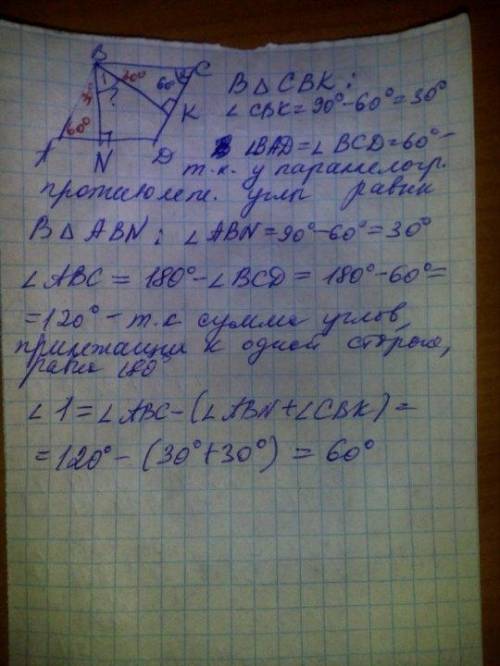 B C K A N D
1 ? 30° 30° 60° 60°
В △ CBK :
∠ CBK = 90° - 60° = 30°
∠BAD = ∠ BCD = 60° -
т.к. у параллелогр.
противолеж. углы равны
В △ ABN ; ∠ ABN = 90° - 60° = 30°
∠ ABC = 180° - ∠ BCD = 180° - 60° =
= 120° - т.к сумма углов,
прилежащих к одной стороне,
равна 180°
∠ 1 = ∠ ABC - (∠ ABN + ∠ CBK) =
= 120° - (30° + 30°) = 60°